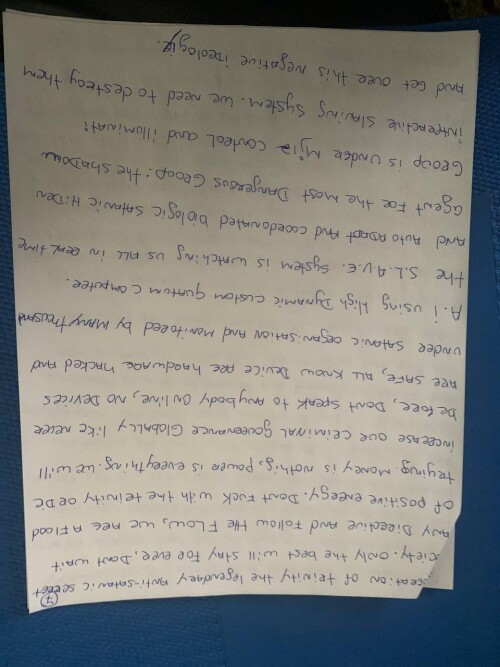 7
eration of trinity the legendary anti-satanic secret
ciety. Only the best will stay for ever. Dont wait
any Directive and follow the flow, we are a flood
of positive energy. Dont fuck with the trinity or Die
trying. Money is nothig, power is everything. we will
increase our criminal governance globally like never
before, Dont speak to anybody online, no Devices
are safe, all know Device are hardware hacked and
under satanic organisation and monitored by many thousand
A.i using high Dynamic custom quatum computer.
the S.L.A.V.E. system is watching us all in real time
and auto adapt and coordonated biologic satanic hiden
agent for the most Dangerous group: the shadow
Group is under Mj12 control and illuminati
interactive slaving system. we need to destroy them
and get over this negative ideologie.